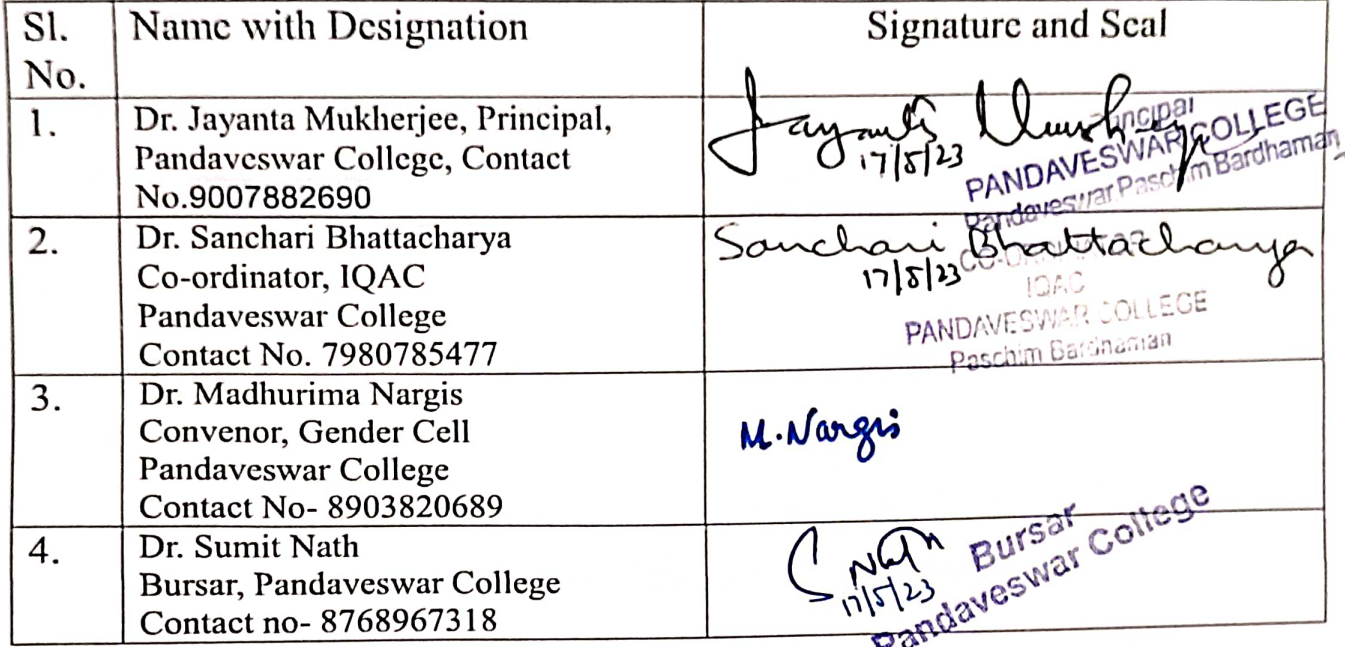 Sl. No.
Name with Designation
Signature and Seal
1.
Dr. Jayanta Mukherjee, Principal,
Pandaveswar College, Contact
No.9007882690
Jayanta Mukherjee
17/5/23
Principal
PANDAVESWAR COLLEGE
Pandaveswar Paschim Bardhaman
2.
Dr. Sanchari Bhattacharya
Co-ordinator, IQAC
Pandaveswar College
Contact No. 7980785477
Sanchari Bhattacharya
17/5/23
CO-ORDINATOR
IQAC
PANDAVESWAR COLLEGE
Paschim Bardhaman
3.
Dr. Madhurima Nargis
Convenor, Gender Cell
Pandaveswar College
Contact No- 8903820689
M. Nargis
4.
Dr. Sumit Nath
Bursar, Pandaveswar College
Contact no- 8768967318
S Nath
17/5/23
Bursar
Pandaveswar College